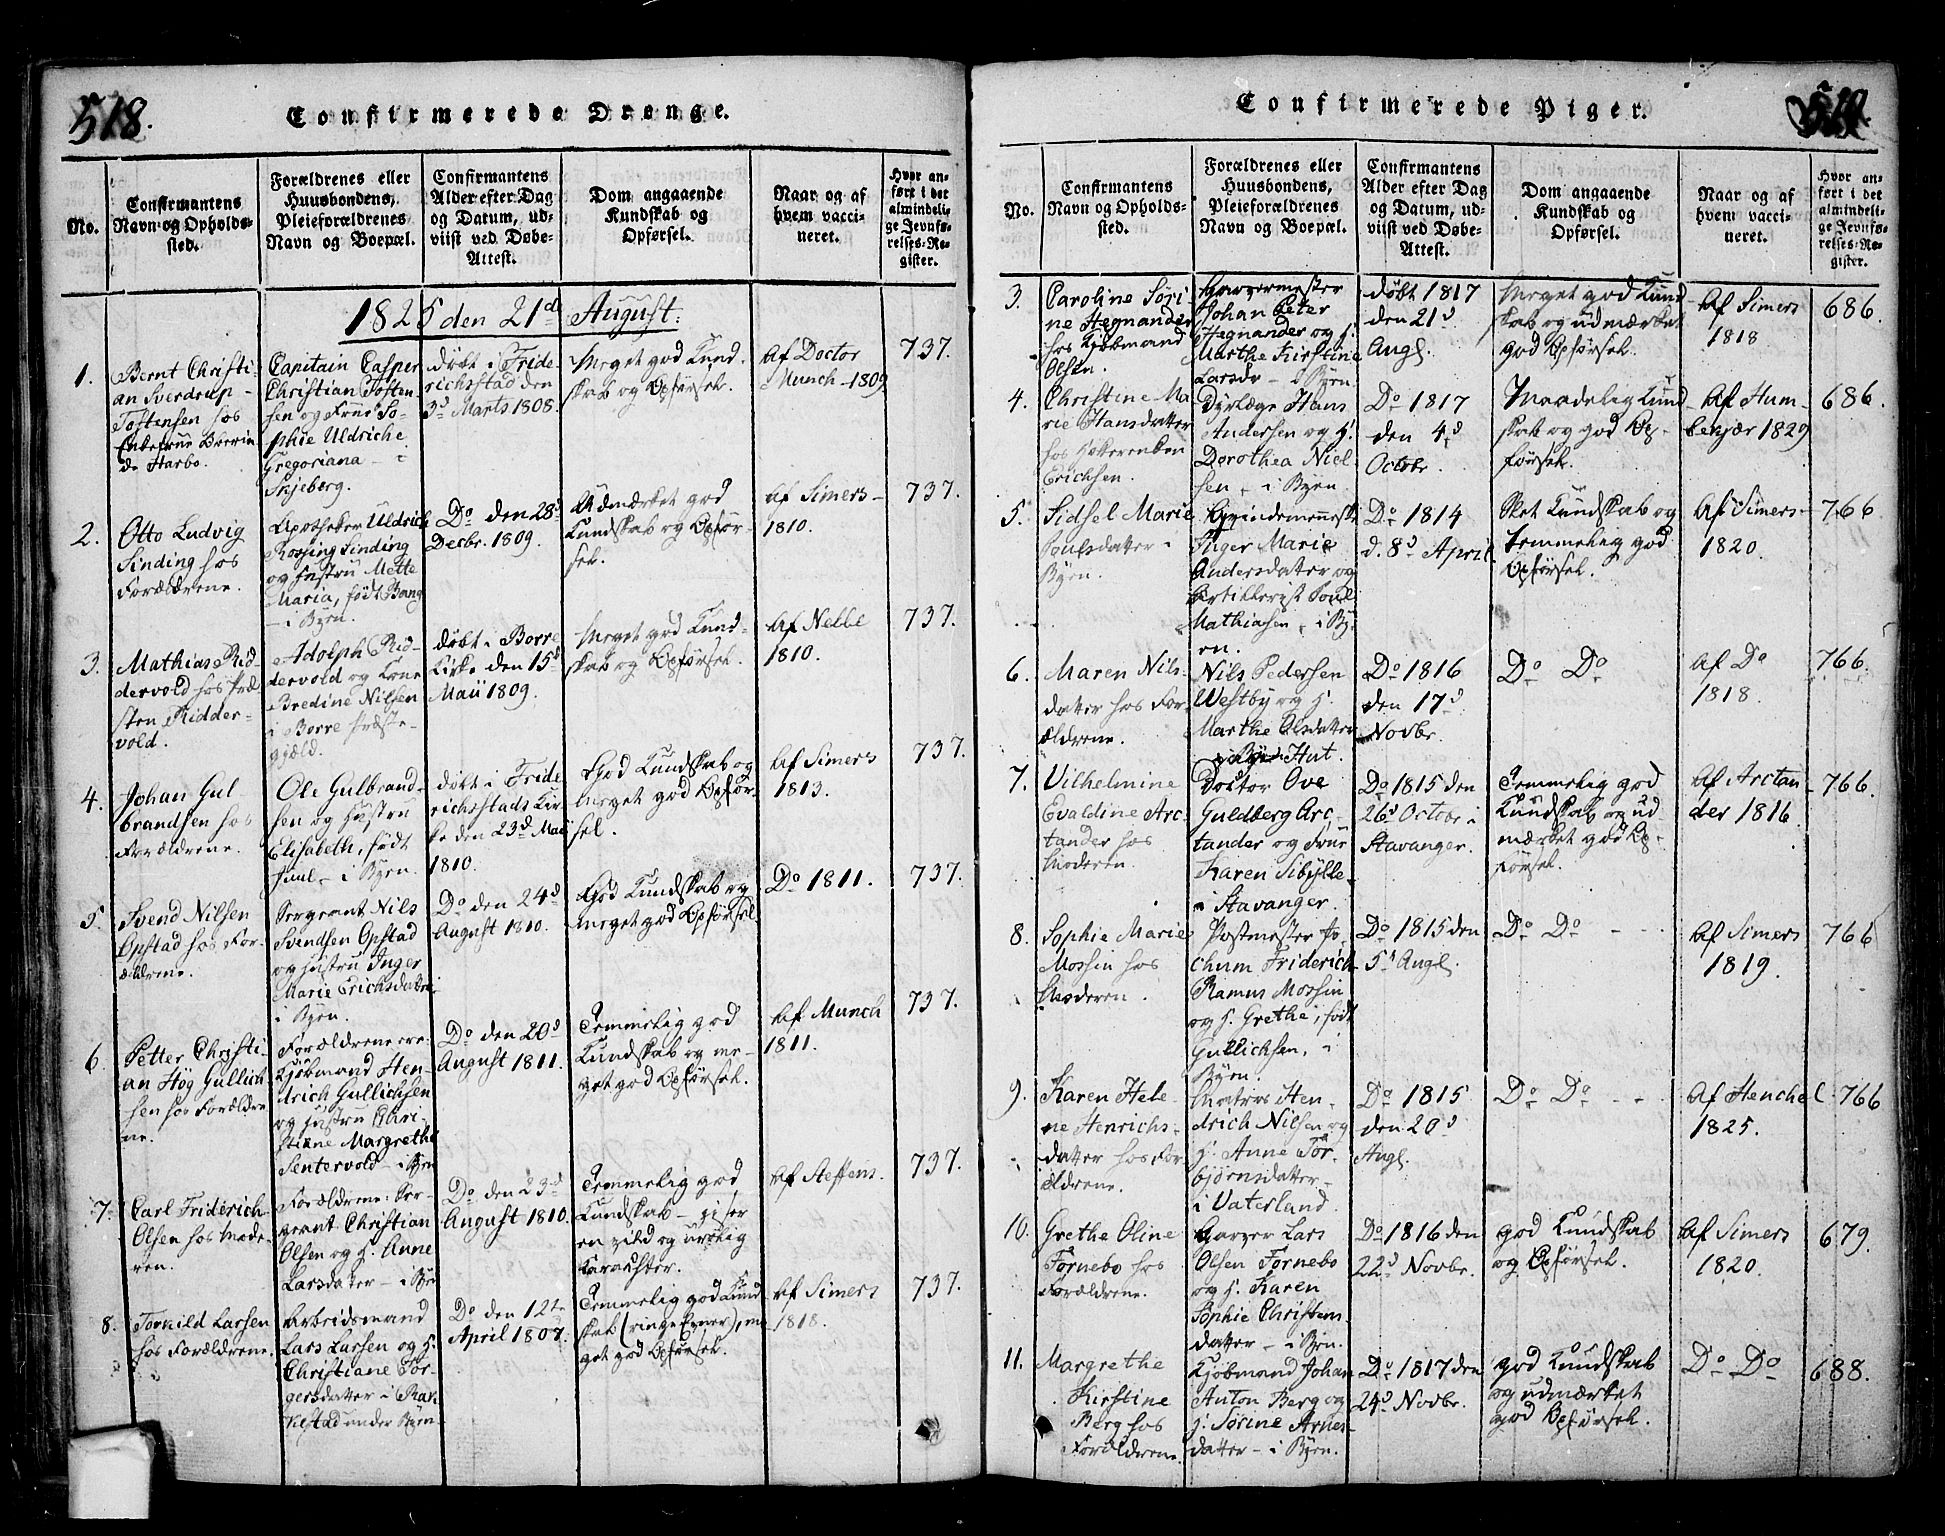 518.
Confirmerede Drenge.
No.
Confirmantens
Navn og Opholds-
sted.
Forældrenes eller
Huusbondens,
Pleieforældrenes
Navn og Boepæl.
Confirmantens
Alder efter Dag
og Datum, ud-
viist ved Døbe-
Attest.
Dom angaaende
Kundskab og
Opførsel.
Naar og af
hvem vacci-
neret.
Hvor an-
ført i det
almindeli-
ge Jevnfø-
relses-Re-
gister.
1825 den 21de August:
1.
Bernt Christi-
an Sverdrup
Tostensen hos
Enkefrue Boerin
de Harbo.
Capitain Casper
Christian Tosten-
sen og Frue So-
phie Uldriche
Gregoriana - i
Skjeberg.
døbt i Fride
richsstad den
3d Marts 1808.
Meget god Kund-
skab og Opførsel.
Af Doctor
Munch - 1809
737.
2.
Otto Ludvig
Sinding hos
Forældrene.
Apotheker Uldrich
Rossing Sinding
og Hustru Mette
Maria, født Bang
- i Byen.
Do den 28d
Decbr. 1809.
Udmærket god
Kundskab og Opfør-
sel.
af Simers -
1810.
737.
3.
Mathias Rid-
dervold hos Præ-
sten Ridder-
vold.
Adolph Rid-
dervold og Kone
Bredine Nilsen
i Borre Præste-
gjæld.
døbt i Borre
Kirke den 15d
Maii 1809.
Meget god Kund-
skab og Opførsel.
af Nelbe
1810.
737.
4.
Johan Gul-
brandsen hos
Forældrene.
Ole Gulbrand-
sen og Hustru
Elisabeth, født
Juul - i Byen.
døbt i Fride
richsstads Kir-
ke den 23d Maii
1810.
God Kundskab og
meget god Opfør-
sel.
af Simers
1813.
737.
5
Svend Nilsen
Opstad hos For-
ældrene.
Sergeant Nils
Svendsen Opstad
og Hustru Inger
Marie Erichsdatter
i Byen.
Do den 24d
August 1810.
God Kundskab og
meget god Opførsel.
Do 1811.
737.
6.
Petter Christi-
an Høg Gullich
sen hos Forældre
ne.
Forældrene ere:
Kjøbmand Hen-
drich Gullichsen
og Hustru Chri-
stiane Margrethe
Sentervold - i Byen
Do den 20d
August 1811.
Temmelig god
Kundskab og me-
get god Opførsel.
Af Munch
1811.
737.
7.
Carl Friderich
Olsen hos Mode-
ren.
Forældrene: Ser-
geant Christian
Olsen og H. Anne
Larsdatter - i Byen
Do den 23d
August 1810.
Temmelig god
Kundskab -
en og
Karackter.
af Steffens.
737.
8.
Torkild Larsen
hos Forældrene.
Arbeidsmand
Lars Larsen og H.
Christiane Tor-
gersdatter i
under Byen.
Do den 12te
April 1807.
Temmelig god Kund
skab (ringe Evner), me
get god Opførsel.
af Simers
1818.
737.
Confirmerede Piger.
519.
No.
Confirmantens
Navn og Opholds-
sted.
Forældrenes eller
Huusbondens,
Pleieforældrenes
Navn og Boepæl.
Confirmantens
Alder efter Dag
og Datum, ud-
viist ved Døbe-
Attest.
Dom angaaende
Kundskab og
Opførsel.
Naar og af
hvem vacci-
neret.
Hvor an-
ført i det
almindeli-
ge Jevnfø-
relses-Re-
gister.
3.
Caroline Søri-
ne Hegnander
hos Kjøbmand
Olsen.
Garvermester
Johan Peter
Hegnander og H.
Marthe Kirstine
Larsdr - i Byen.
døbt 1817
den 21d
Augl.
Meget god Kund
skab og udmærket
god Opførsel.
Af Simers
1818
686.
4.
Christine Ma
rie Hansdatter
hos
Erichsen.
Dyrlæge Hans
Andersen og H.
Dorothea Niel-
sen - i Byen.
Do 1817
den 4d
Octobr.
Maadelig Kund
skab og god Op-
førsel.
Af Hum-
bekjær 1829
686.
5.
Sidsel Marie
Poulsdatter i
Byen.
Qvindemenneske
Inger Marie
Andersdatter og
Artillerist Poul
Mathiasen - i By-
en.
Do 1814
d. 8d April
Slet Kundskab og
temmelig god
Opførsel.
Af Simers
1820.
766
6.
Maren Nils-
datter hos For-
ældrene.
Nils Pedersen
Westby og H.
Marthe Olsdatter
Hut.
Do 1816
den 17d
Novbr.
Do Do
af Do
1818.
766.
7.
Vilhelmine
Evaldine Arc-
tander hos
Moderen.
Doktor Ove
Guldberg Arc-
tander og Frue
Karen Sibylle
i Stavanger.
Do 1815 den
26d Octobr i
Stavanger.
Temmelig god
Kundskab og ud
mærket god Op-
førsel.
af Arctan
der 1816
766.
8.
Sophie Marie
Mossin hos
Moderen.
Postmester Jo-
chum Friderich
Ramus Mossin
og H. Grethe, født
Gullichsen, i
Byen.
Do 1815 den
5d Augl.
Do Do - -
Af Simers
1819.
766
9.
Karen Hele
ne Henrichs-
datter hos For-
ældrene.
Matros Hen-
drich Nilsen og
H. Anne Tor-
bjørnsdatter -
i Vaterland.
Do 1815
den 20d
Augl.
Do Do - -
Af Henchel
1825.
766
10.
Grethe Oline
Fornebo hos
Forældrene.
Garver Lars
Olsen Fornebo
og H. Karen
Sophie Christens-
datter - i Byen.
Do 1816 den
22d Novbr.
god Kundskab
og Opførsel.
Af Simers
1820.
679.
11.
Margrethe
Kirstine
Berg hos
Forældrene.
Kjøbmand Johan
Anton Berg og
H. Sørine Arnes-
datter - i Byen.
Do 1817 den
24d Novbr.
god Kundskab
og udmærket
god Opførsel.
Do Do
688.